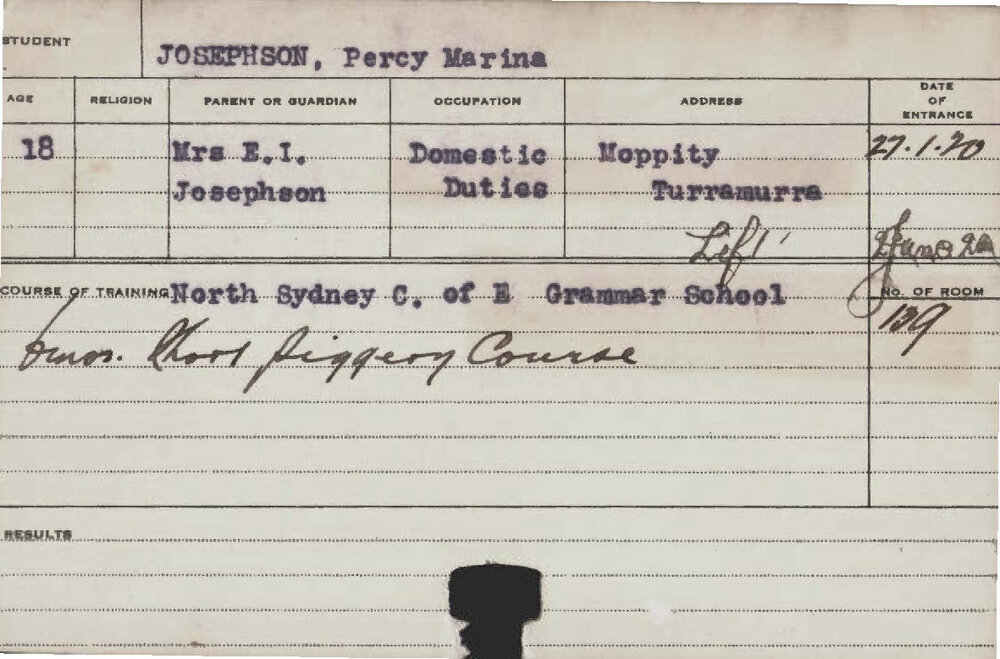 STUDENT JOSEPHSON, Percy Marina
AGE RELIGION PARENT OR GUARDIAN OCCUPATION ADDRESS DATE OF ENTRANCE
18 Mrs E.I. Domestic Moppity 27.1.20
Josephson Duties Turramurra
Left June 20
COURSE OF TRAINING North Sydney C. of E Grammar School NO. OF ROOM
139
6mos. Short Piggery Course
RESULTS